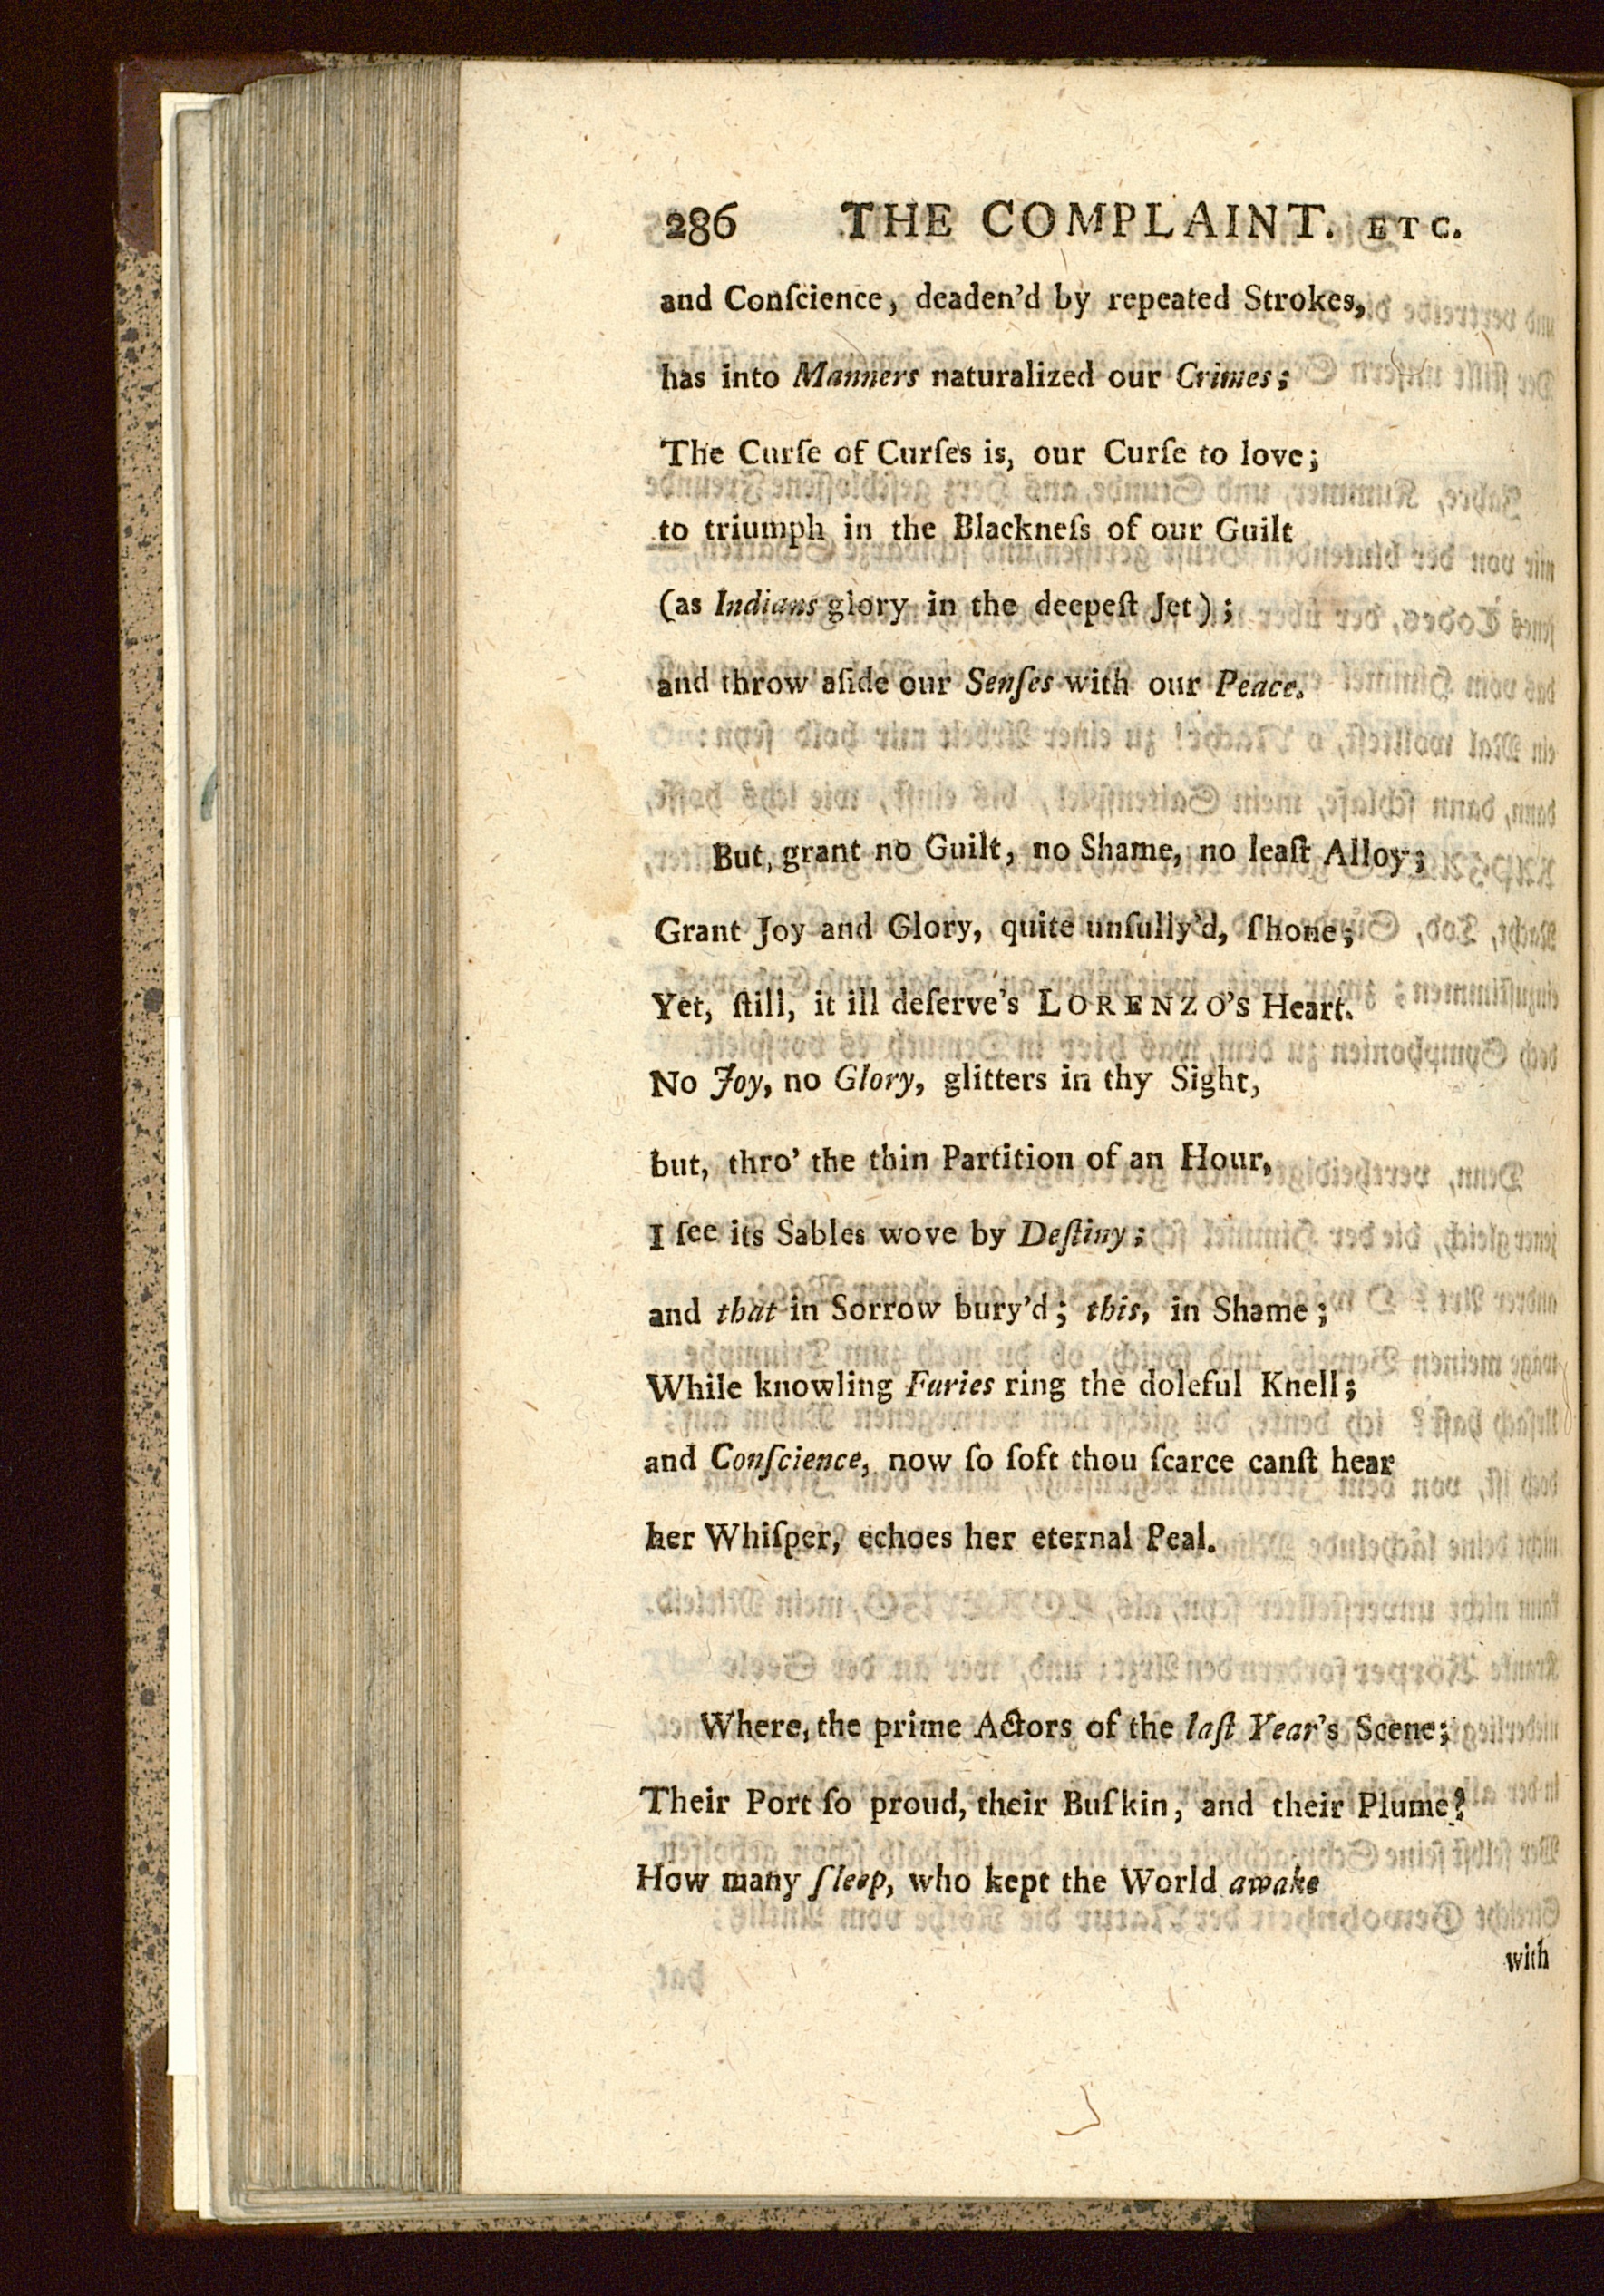 286 THE COMPLAINT. ETC.
and Conſcience, deaden'd by repeated Strokes,
has into Manners naturalized our Crimes;
The Curſe of Curſes is, our Curſe to love;
to triumph in the Blackneſs of our Guilt
(as Indians glory in the deepeſt Jet);
and throw aſide our Senſes with our Peace.
But, grant no Guilt, no Shame, no leaſt Alloy;
Grant Joy and Glory, quite unſully'd, ſhone;
Yet, ſtill, it ill deſerve's LORENZO'S Heart.
No Joy, no Glory, glitters in thy Sight,
but, thro' the thin Partition of an Hour,
I ſee its Sables wove by Deſtiny;
and that in Sorrow bury'd; this, in Shame;
While knowling Furies ring the doleful Knell;
and Conſcience, now ſo ſoft thou ſcarce canſt hear
her Whiſper, echoes her eternal Peal.
Where, the prime Actors of the laſt Year's Scene;
Their Port ſo proud, their Buſkin, and their Plume?
How many ſleep, who kept the World awake
with